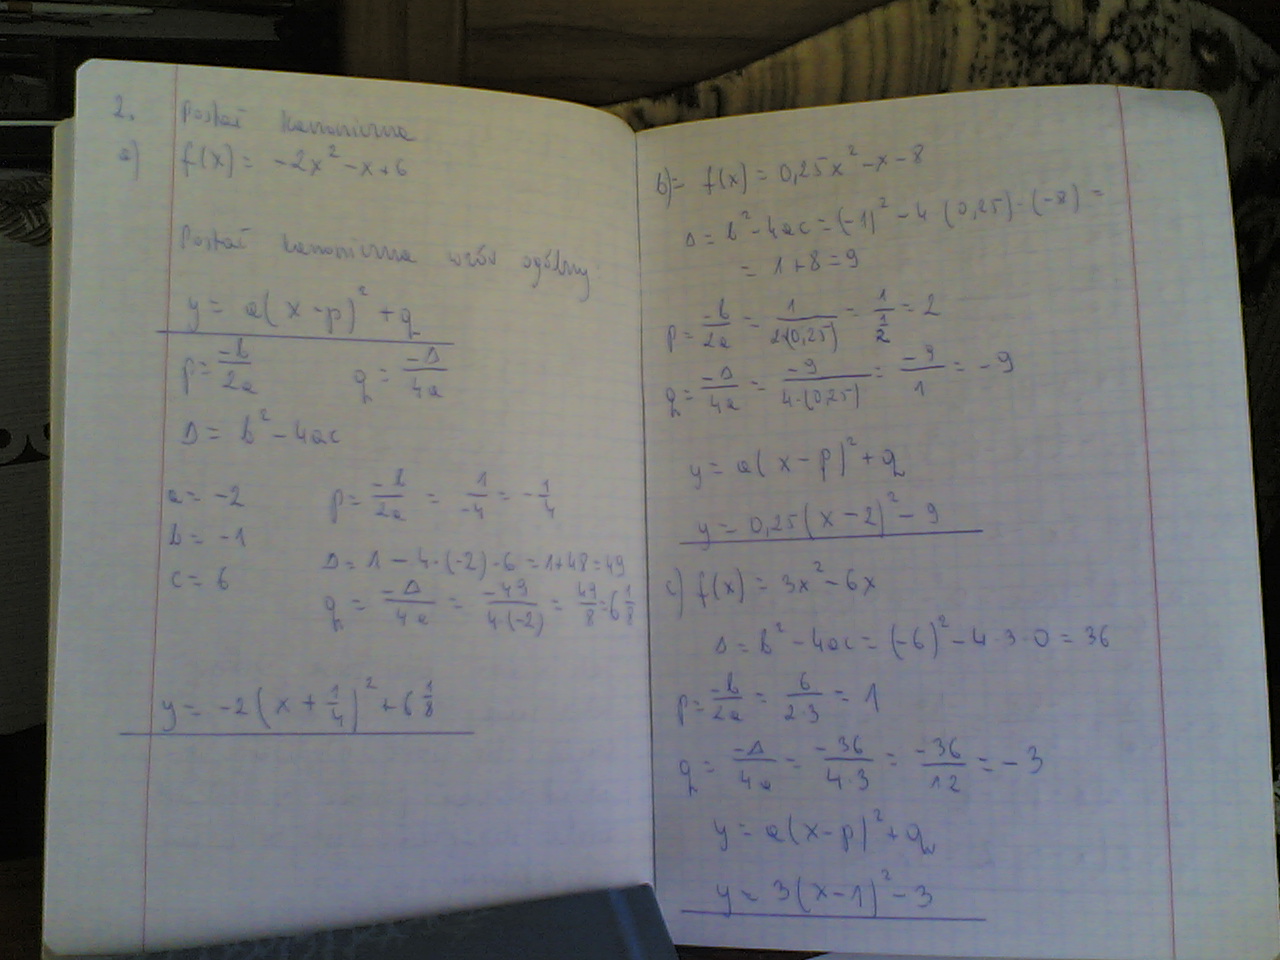 2. Postać kanoniczna
a) f(x) = -2x² - x + 6
Postać kanoniczna wzór ogólny
y = a(x-p)² + q
p = -b/2a q = -Δ/4a
Δ = b² - 4ac
a = -2 p = -b/2a = 1/-4 = -1/4
b = -1
Δ = 1 - 4·(-2)·6 = 1+48 = 49
c = 6
q = -Δ/4a = -49/4·(-2) = 49/8 = 6 1/8
y = -2(x + 1/4)² + 6 1/8
b) = f(x) = 0,25x² - x - 8
Δ = b² - 4ac = (-1)² - 4 (0,25)·(-8) =
= 1+8 = 9
p = -b/2a = 1/2·(0,25) = 1/(1/2) = 2
q = -Δ/4a = -9/4·(0,25) = -9/1 = -9
y = a(x-p)² + q
y = 0,25(x-2)² - 9
c) f(x) = 3x² - 6x
Δ = b² - 4ac = (-6)² - 4·3·0 = 36
p = -b/2a = 6/2·3 = 1
q = -Δ/4a = -36/4·3 = -36/12 = -3
y = a(x-p)² + q
y = 3(x-1)² - 3